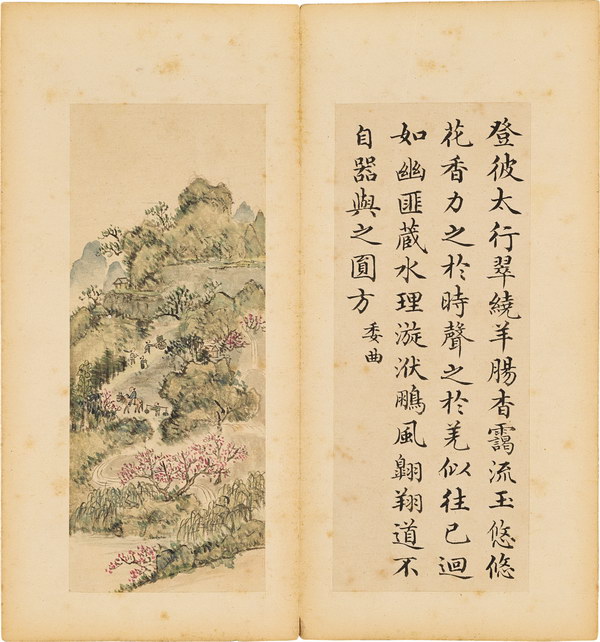 登彼太行翠繞羊腸杳靄流玉悠悠
花香力之於時聲之於羌似往已迴
如幽匪藏水理漩洑鵬風翱翔道不
自器與之圓方
委曲